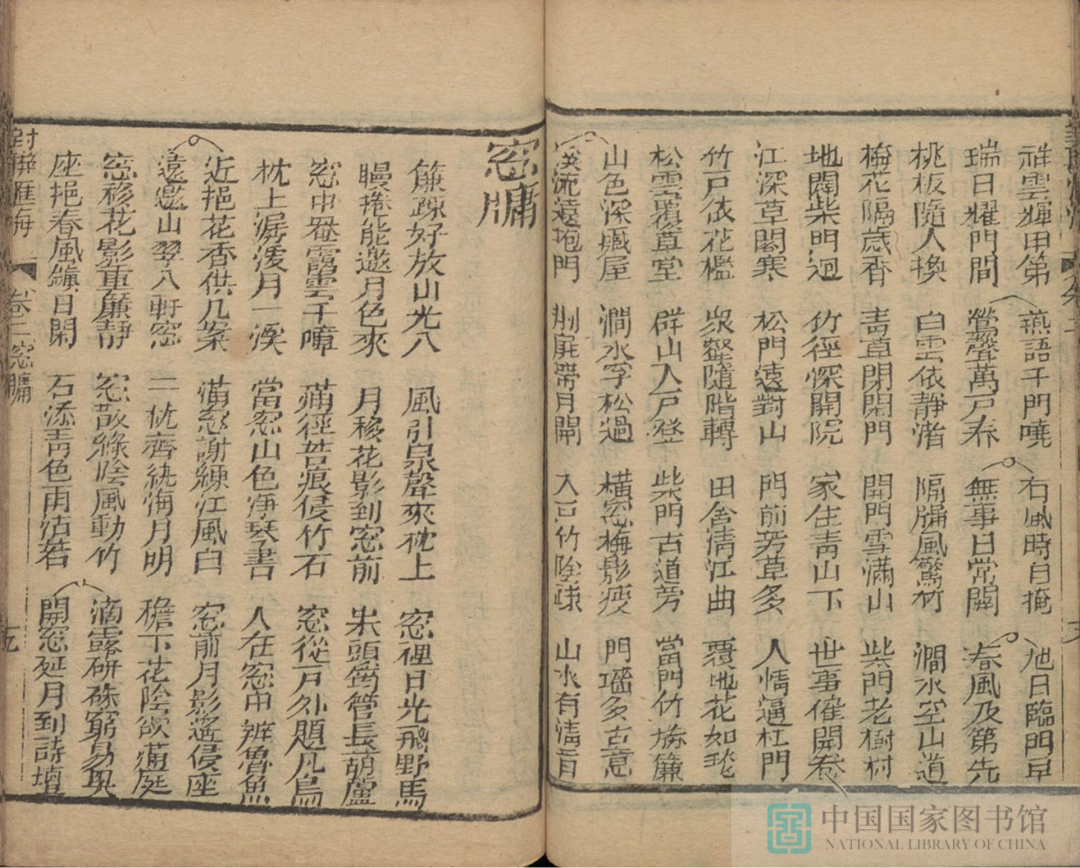 祥雲輝甲第 燕語千門曉 石風時自掩 旭日臨門早
瑞日耀門閭 鶯聲萬戶春 無事日常關 春風及第先
桃板隨人換 白雲依靜渚 隔牖風驚竹 澗水空山道
梅花隔歲香 青草閉閑門 開門雪滿山 柴門老樹村
地闢柴門迥 竹徑深開院 家住青山下 世事催開卷
江深草閣寒 松門遠對山 門前芳草多 人情逼杜門
竹戶依花檻 衆壑隨階轉 田舍清江曲 覆地花如毯
松雲覆草堂 群山入戶登 柴門古道旁 當門竹作簾
山色深藏屋 澗水穿松過 橫窓梅影瘦 門墻多古意
溪流遠抱門 荊扉帶月開 入戶竹陰疎 山水有清音
窓牖
簾疎好放山光入 風引泉聲來枕上 窓裡日光飛野馬
幔捲能邀月色來 月移花影到窓前 案頭筠管長葫蘆
窓中叠靄雲千嶂 滿徑苔痕侵竹石 窓從戶外題凡鳥
枕上潺湲月一溪 當窓山色淨琴書 人在窓中辨魯魚
近挹花香供几案 滿窓謝練江風白 窓前月影遙侵座
遠邀山翠入軒窓 一枕齊紈海月明 檐下花陰欲滿庭
窓移花影重簾靜 窓敲綠陰風動竹 滴露研硃窮易奧
座挹春風鎮日閑 石添青色雨沾苔 開窓延月到詩壇
對聯匯海 卷二 窓牖
中国国家图书馆
NATIONAL LIBRARY OF CHINA